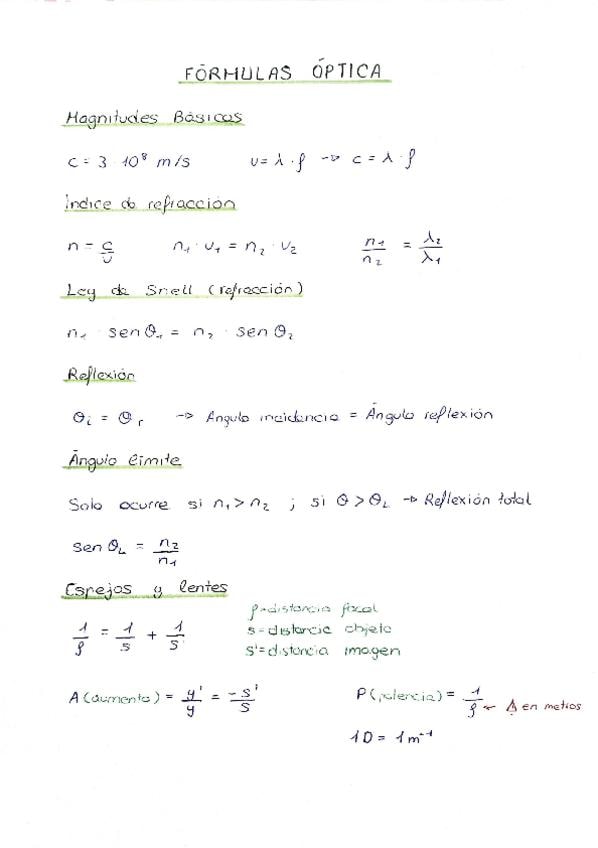 FÓRMULAS ÓPTICA
Magnitudes Básicas
c = 3 · 10⁸ m/s v = λ · f -> c = λ · f
Índice de refracción
n = c/v n₁ · v₁ = n₂ · v₂ n₁/n₂ = λ₂/λ₁
Ley de Snell (refracción)
n₁ · sen θ₁ = n₂ · sen θ₂
Reflexión
θi = θr -> Ángulo incidencia = Ángulo reflexión
Ángulo límite
Solo ocurre si n₁ > n₂ ; si θ > θL -> Reflexión total
sen θL = n₂/n₁
Espejos y lentes
f = distancia focal
s = distancia objeto
s' = distancia imagen
1/f = 1/s + 1/s'
A (aumento) = y'/y = -s'/s P (potencia) = 1/f ← ⚠ en metros
1D = 1 m⁻¹